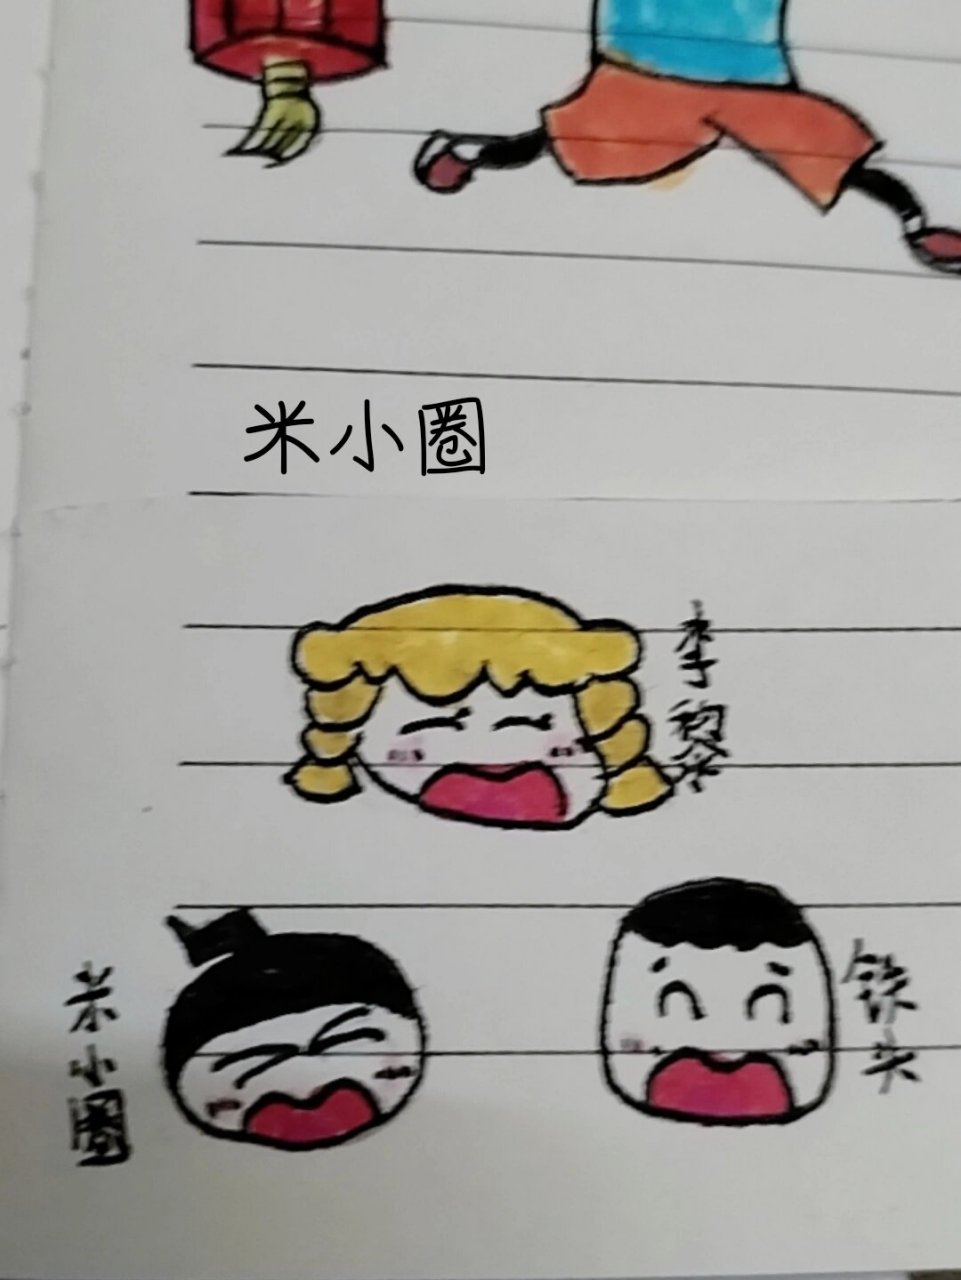 米小圈
李黎
米小圈
铁头